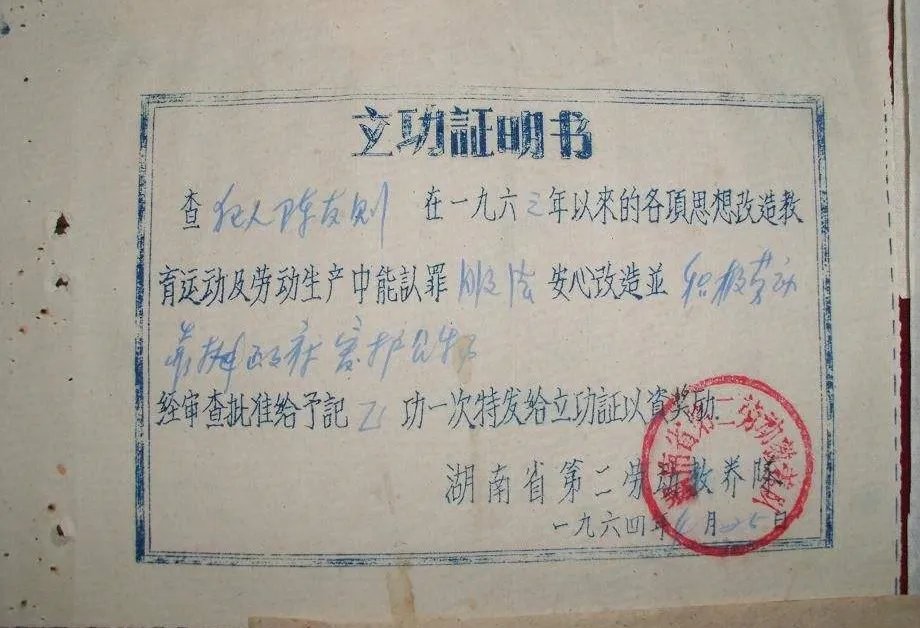 立功証明书
查犯人陈友则在一九六三年以來的各項思想改造教
育运动及劳动生产中能認罪服法安心改造並积极劳动
靠拢政府爱护公物
经审查批准给予記乙功一次特发给立功証以資奖励.
湖南省第二劳动教养队
一九六四年 月二五日
湖南省第二劳动教养队